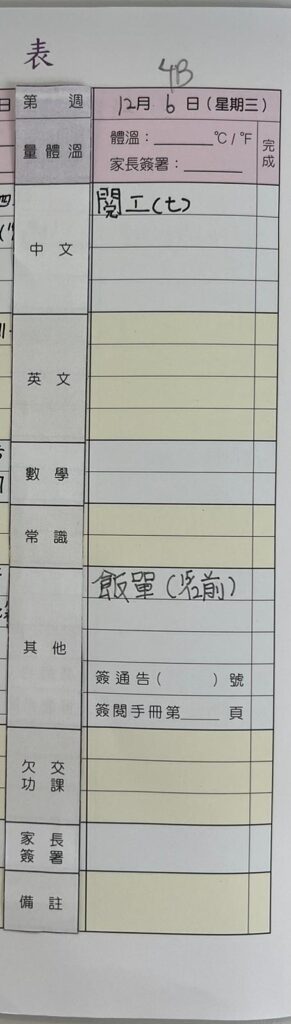 表
4B
日 第 週 12月 6 日(星期三)
量體溫 體溫：______℃/℉ 完成
家長簽署：______
中文 閱工(七)
英文
數學
常識
其他 飯單(前)
簽通告( )號
簽閱手冊第____頁
欠交功課
家長簽署
備註